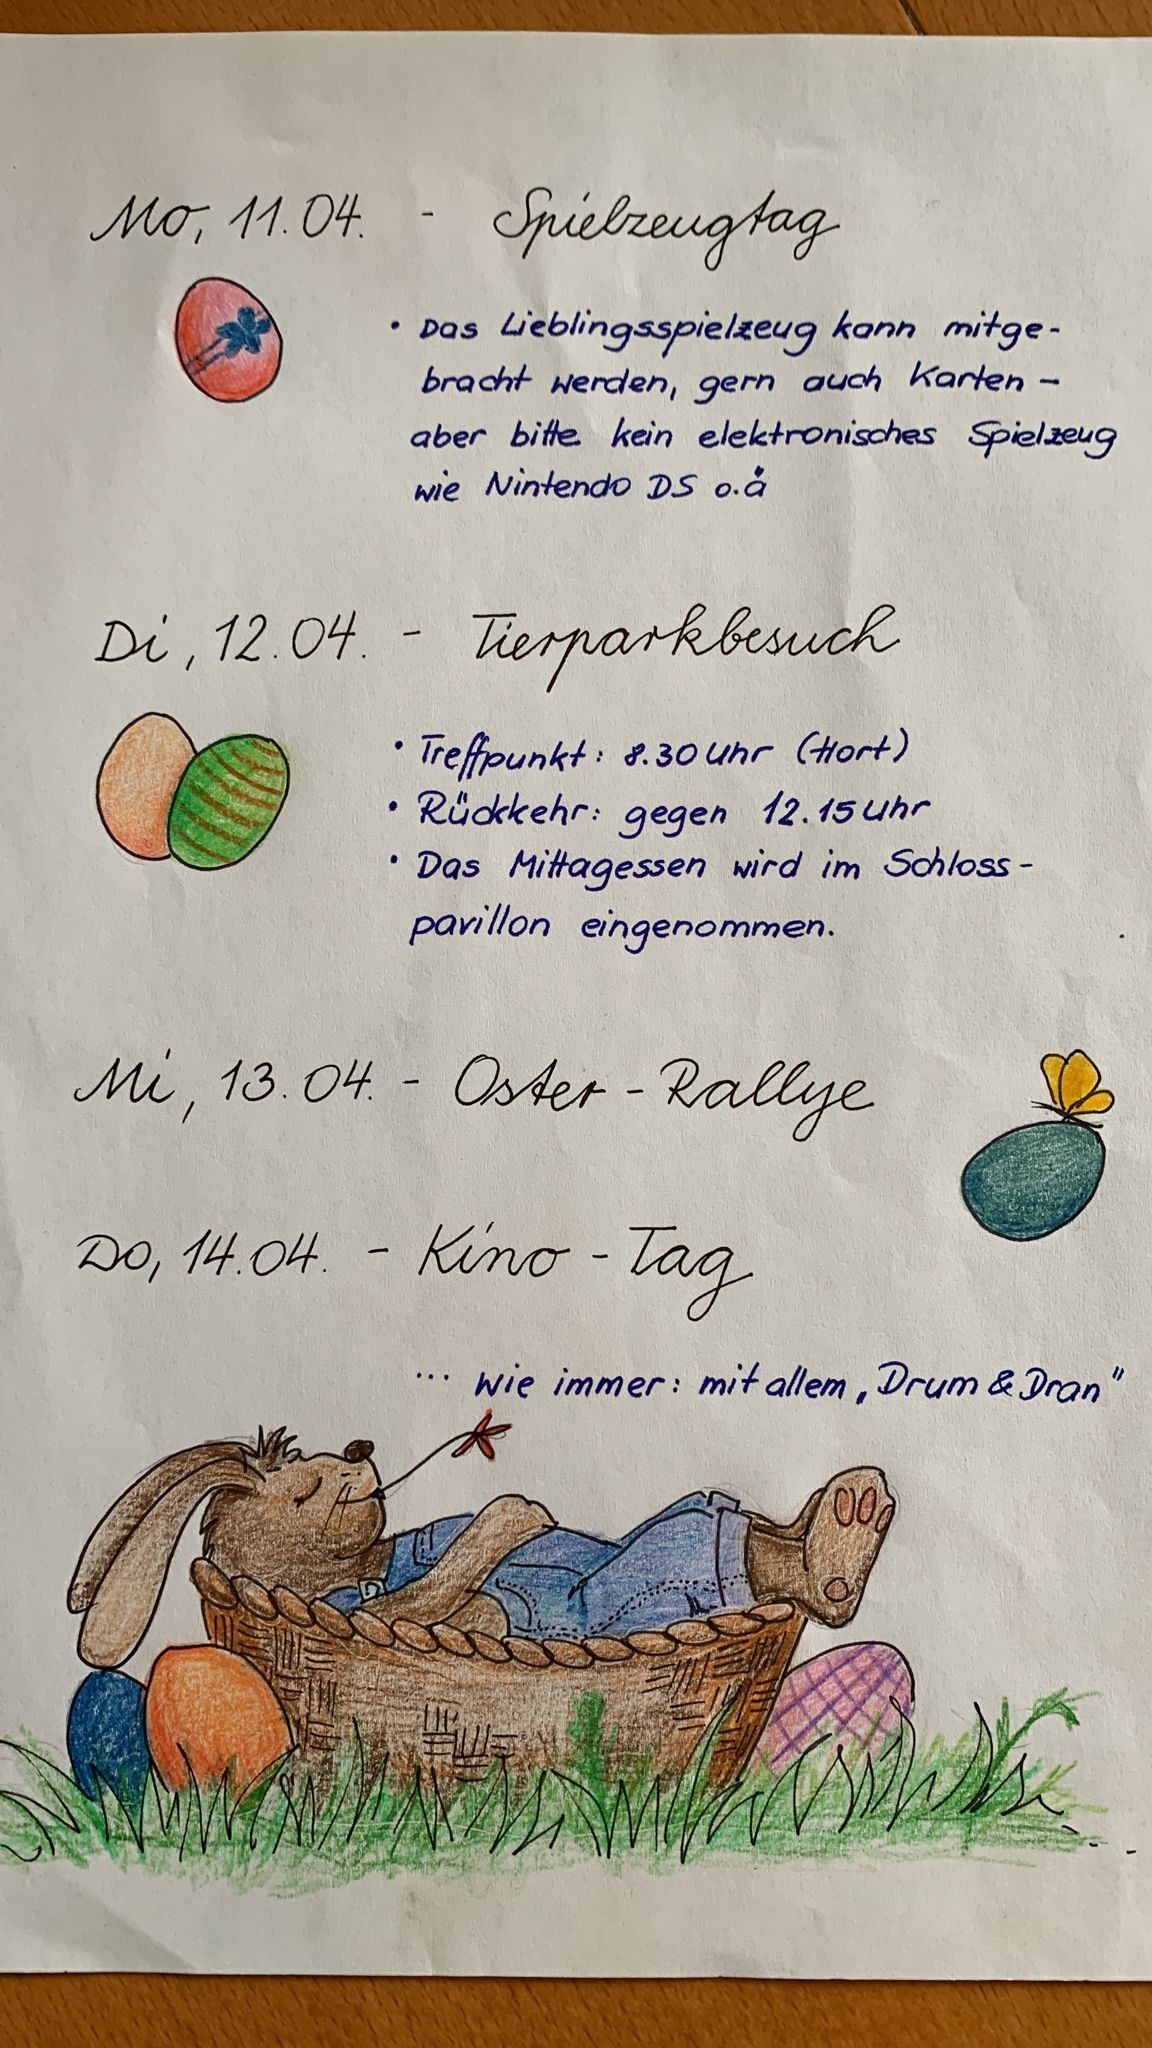 Mo, 11.04. - Spielzeugtag
• Das Lieblingsspielzeug kann mitge-
bracht werden, gern auch Karten -
aber bitte kein elektronisches Spielzeug
wie Nintendo DS o.ä
Di, 12.04. - Tierparkbesuch
• Treffpunkt: 8.30 Uhr (Hort)
• Rückkehr: gegen 12.15 Uhr
• Das Mittagessen wird im Schloss-
pavillon eingenommen.
Mi, 13.04. - Oster-Rallye
Do, 14.04. - Kino-Tag
... wie immer: mit allem „Drum & Dran"